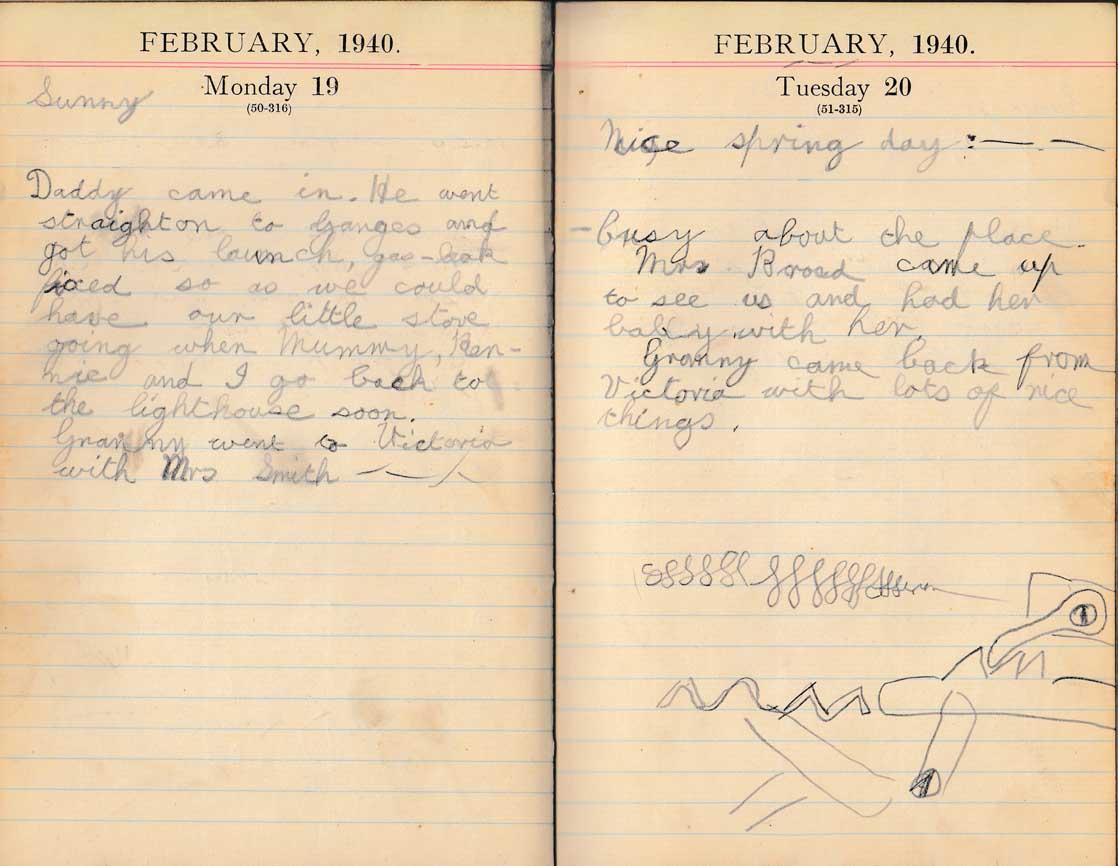 FEBRUARY, 1940.
Monday 19
(50-316)
Sunny
Daddy came in. He went
straight on to Ganges and
got his launch, gas-leak
fixed so as we could
have our little stove
going when Mummy, Ren-
nie and I go back to
the lighthouse soon.
Granny went to Victoria
with Mrs Smith
FEBRUARY, 1940.
Tuesday 20
(51-315)
Nice spring day :—.—
- busy about the place.
Mrs Broad came up
to see us and had her
baby with her.
Granny came back from
Victoria with lots of nice
things.